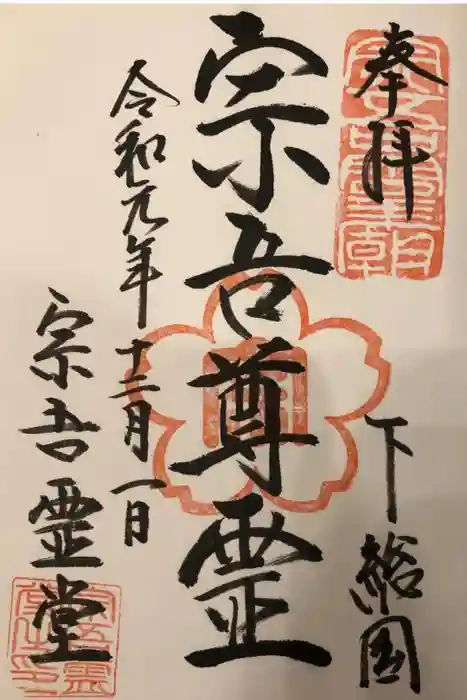 奉拝
下総国
宗吾尊霊
令和元年十二月一日
宗吾霊堂